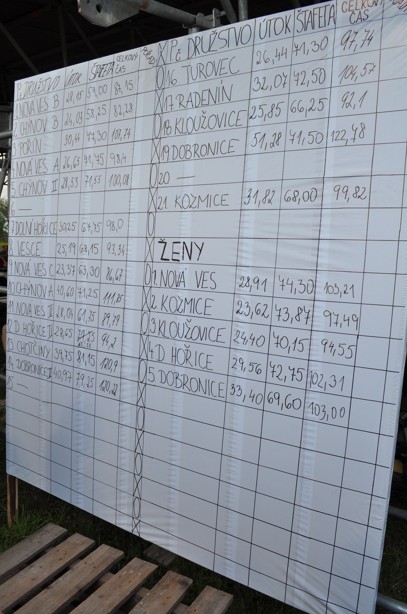 DRUŽSTVO ÚTOK ŠTAFETA CELKOVÝ ČAS
NOVÁ VES B 28,15 59,00 87,15
CHÝNOV B
POŘÍN 30,44
NOVÁ VES A 26,65 71,75 98,4
CHÝNOV II 28,53 71,55 100,08
DOLNÍ HOŘICE 30,25 67,75 98,0
VESCE 25,19 68,15 93,34
NOVÁ VES C 23,37 63,30 86,67
CHÝNOV A 40,60 71,25 111,85
NOVÁ VES II
D. HOŘICE II 28,65
CHOTČINY 39,75 81,15 120,9
DOBRONICE II 40,97 79,25 120,22
15 —
Pč DRUŽSTVO ÚTOK ŠTAFETA CELKOVÝ ČAS
16 TUROVEC 26,44 71,30 97,74
17 RADENÍN 32,07 72,50 104,57
18 KLOUŽOVICE 25,85 66,25 92,1
19 DOBRONICE 51,28 71,50 122,78
20 —
21 KOZMICE 31,82 68,00 99,82
ŽENY
1. NOVÁ VES 28,91 74,30 103,21
2 KOZMICE 23,62 73,87 97,49
3 KLOUŽOVICE 24,40 70,15 94,55
4 D. HOŘICE 29,56 72,75 102,31
5. DOBRONICE 33,40 69,60 103,00